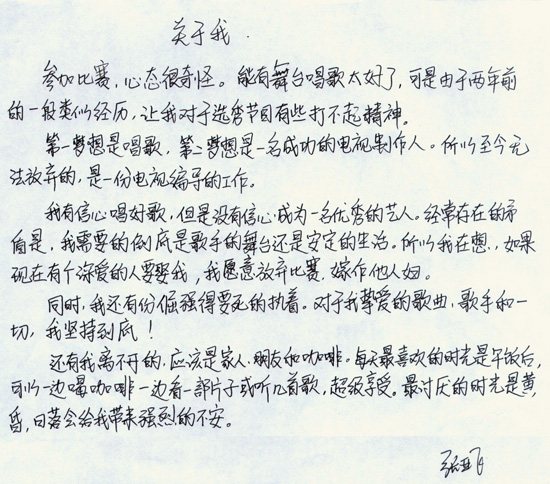 关于我.
参加比赛，心态很奇怪。能有舞台唱歌太好了，可是由于两年前
的一段类似经历，让我对于选秀节目有些打不起精神。
第一梦想是唱歌，第二梦想是一名成功的电视制作人。所以至今无
法放弃的，是一份电视编导的工作。
我有信心唱好歌，但是没有信心成为一名优秀的艺人。经常存在的矛
盾是，我需要的倒底是歌手的舞台还是安定的生活。所以我在想，如果
现在有个深爱的人要娶我，我愿意放弃比赛，嫁作他人妇。
同时，我还有份倔强得要死的执着。对于我挚爱的歌曲，歌手和一
切，我坚持到底！
还有我离不开的，应该是家人、朋友和咖啡。每天最喜欢的时光是午饭后，
可以一边喝咖啡一边看一部片子或听几首歌，超级享受。最讨厌的时光是黄
昏，日落会给我带来强烈的不安。
张亚飞